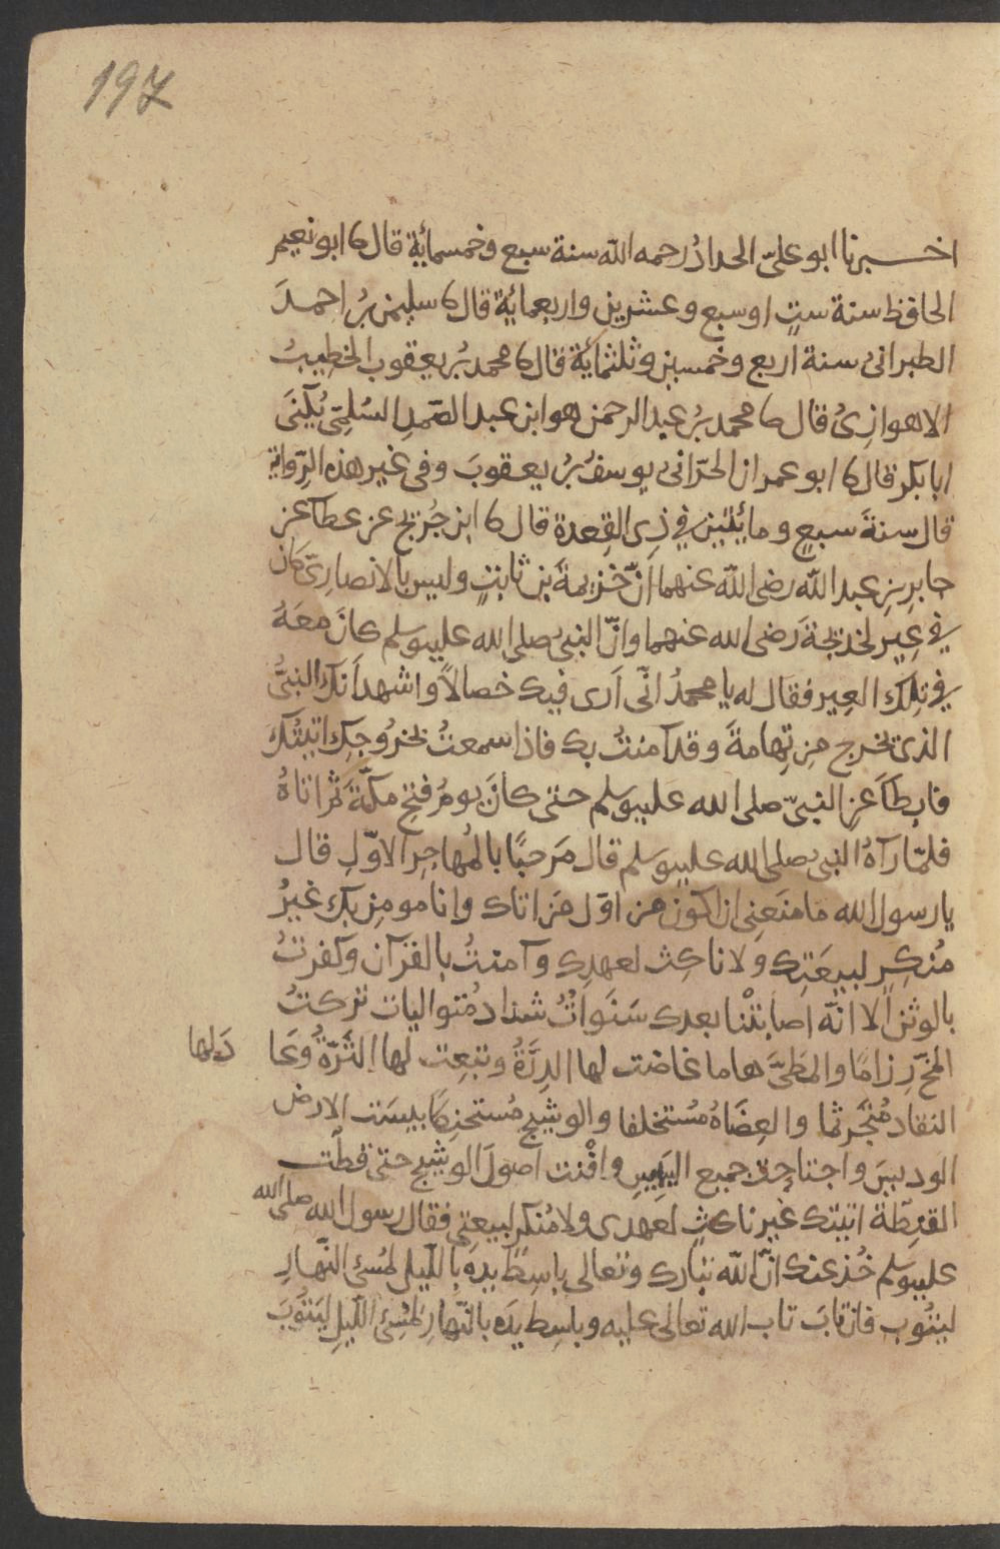 197
اخبرنا ابو علىّ الحدادُ رحمه الله سنة سبع وخمسمائة قال ثنا ابو نعيم
الحافظ سنة ستٍ او سبع وعشرين واربعمائة قال ثنا سليمن بنُ احمدَ
الطبرانى سنة اربع وخمسين وثلثمائة قال ثنا محمد بنُ يعقوب الخطيبُ
الاهوازىُ قال ثنا محمد بنُ عبد الرحمن هو ابن عبد الصّمدِ السُلمِىّ يُكنَى
ابا بكر قال ثنا ابو عمران الحرّانى يوسفُ بنُ يعقوبَ وفى غير هذه الرّواية
قال سنةَ سبعٍ ومائتين فى ذِى القِعدة قال ثنا ابن جُريج عن عطآء عن
جابرِ بنِ عبد الله رضى الله عنهما انّ خزيمةَ بن ثابتٍ وليس بالانصارِىّ كان
فى عِيرٍ لخديجةَ رضى الله عنهما وانّ النبىّ صلى الله عليه وسلم كانَ معَهُ
فى تِلكَ العِير فقال له يا محمدُ انّى اَرى فيك خصالاً واشهد اَنّك النبىُّ
الذى يخرج مِن تِهامةَ وقد آمنتُ بك فاذا سمعتُ بخرُوجِكَ اتيتُك
فابطَاَ عنِ النبىّ صلى الله عليه وسلم حتى كانَ يومُ فتحِ مكّةَ ثم اتاهُ
فلمّا رآهُ النبى صلى الله عليه وسلم قال مَرحبًا بالمُهاجِرِ الاوّلِ قال
يا رسول الله ما منَعنِى ان اكونَ من اوّل مَن اتاك وانا مومِن بك غيرُ
مُنكِرٍ لبيعَتِك ولا ناكِث لعهدِك وآمنتُ بالقرآن وكفرتُ
بالوثنِ الا انّه اصابتْنا بعدك سَنَواتٌ شداد مُتواليات تركتُ
المخّ رِزامًا والمَطِىَّ هاما غاضت لها الدِرَّةُ ونبعت لها الثَرَّةُ وعَا دَ لها
النقاد مُتجَرثما والعِضَاهُ مُستخلفا والوشيج مُستحنِكا يبسَت الارض
الوديسَ واجتاحت جميع اليَبِيسِ وافْنت اصولَ الوشيج حتى قطّت
القنِطّة اتيتك غير ناكثٍ لعهدى ولا مُنكرٍ لبيعتِى فقال رسول الله صلى الله
عليه وسلم خُذ عنك انّ الله تبارك وتعالى باسِطٌ يدَه بالليل لمُسِئِ النّهارِ
ليتُوب فان تابَ تاب الله تعالى عليه وباسِط يدَه بالنّهارِ لمُسِئ الليلِ ليَتُوبَ